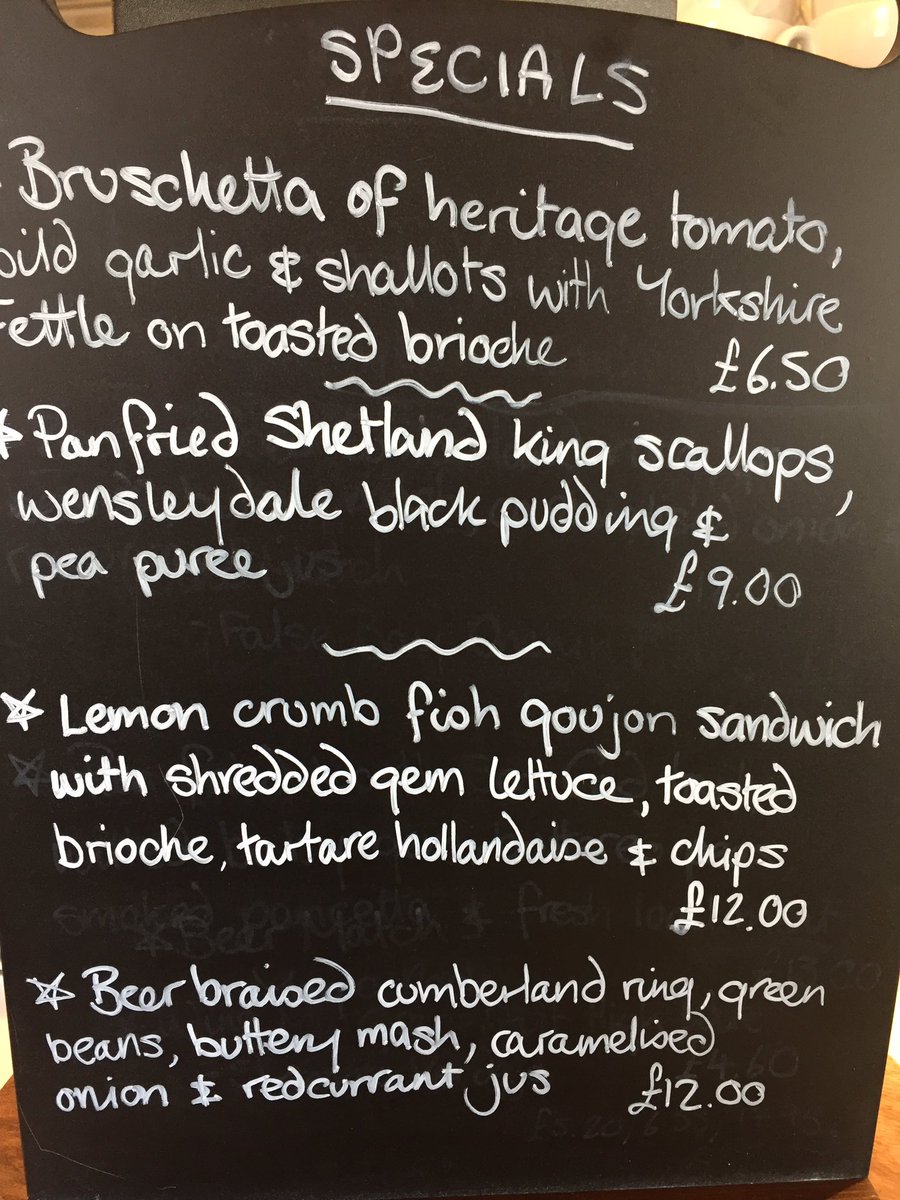 SPECIALS
Bruschetta of heritage tomato,
wild garlic & shallots with Yorkshire
Fettle on toasted brioche £6.50
Panfried Shetland king scallops,
wensleydale black pudding &
pea puree £9.00
Lemon crumb fish goujon sandwich
with shredded gem lettuce, toasted
brioche, tartare hollandaise & chips
£12.00
Beer braised cumberland ring, green
beans, buttery mash, caramelised
onion & redcurrant jus £12.00